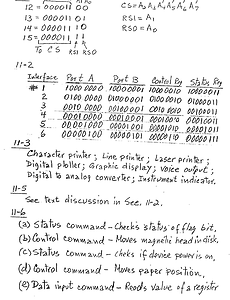 12 = 000011 00
13 = 000011 01
14 = 000011 10
15 = 000011 11
To CS RS1 RS0
RS1 = A1
RS0 = A0
11-2
Interface Port A Port B Control Reg Status Reg
# 1 10000000 10000001 10000010 10000011
2 01000000 01000001 01000010 01000011
6
11-3
Character printer; Line printer; Laser printer;
Digital plotter; Graphic display; Voice output;
Digital to analog converter; Instrument indicator.
11-5
See text discussion in Sec. 11-2.
11-6
(a) Status command - Checks status of flag bit.
(b) Control command - Moves magnetic head in disk.
(c) Status command - checks if device power is on.
(d) Control command - Moves paper position.
(e) Data input command - Reads value of a register